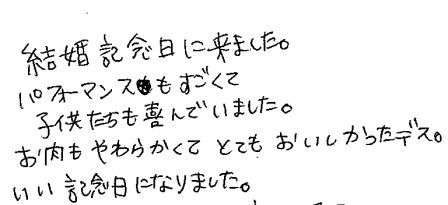 結婚記念日に来ました。
パフォーマンスもすごくて
子供たちも喜んでいました。
お肉もやわらかくてとてもおいしかったデス。
いい記念日になりました。